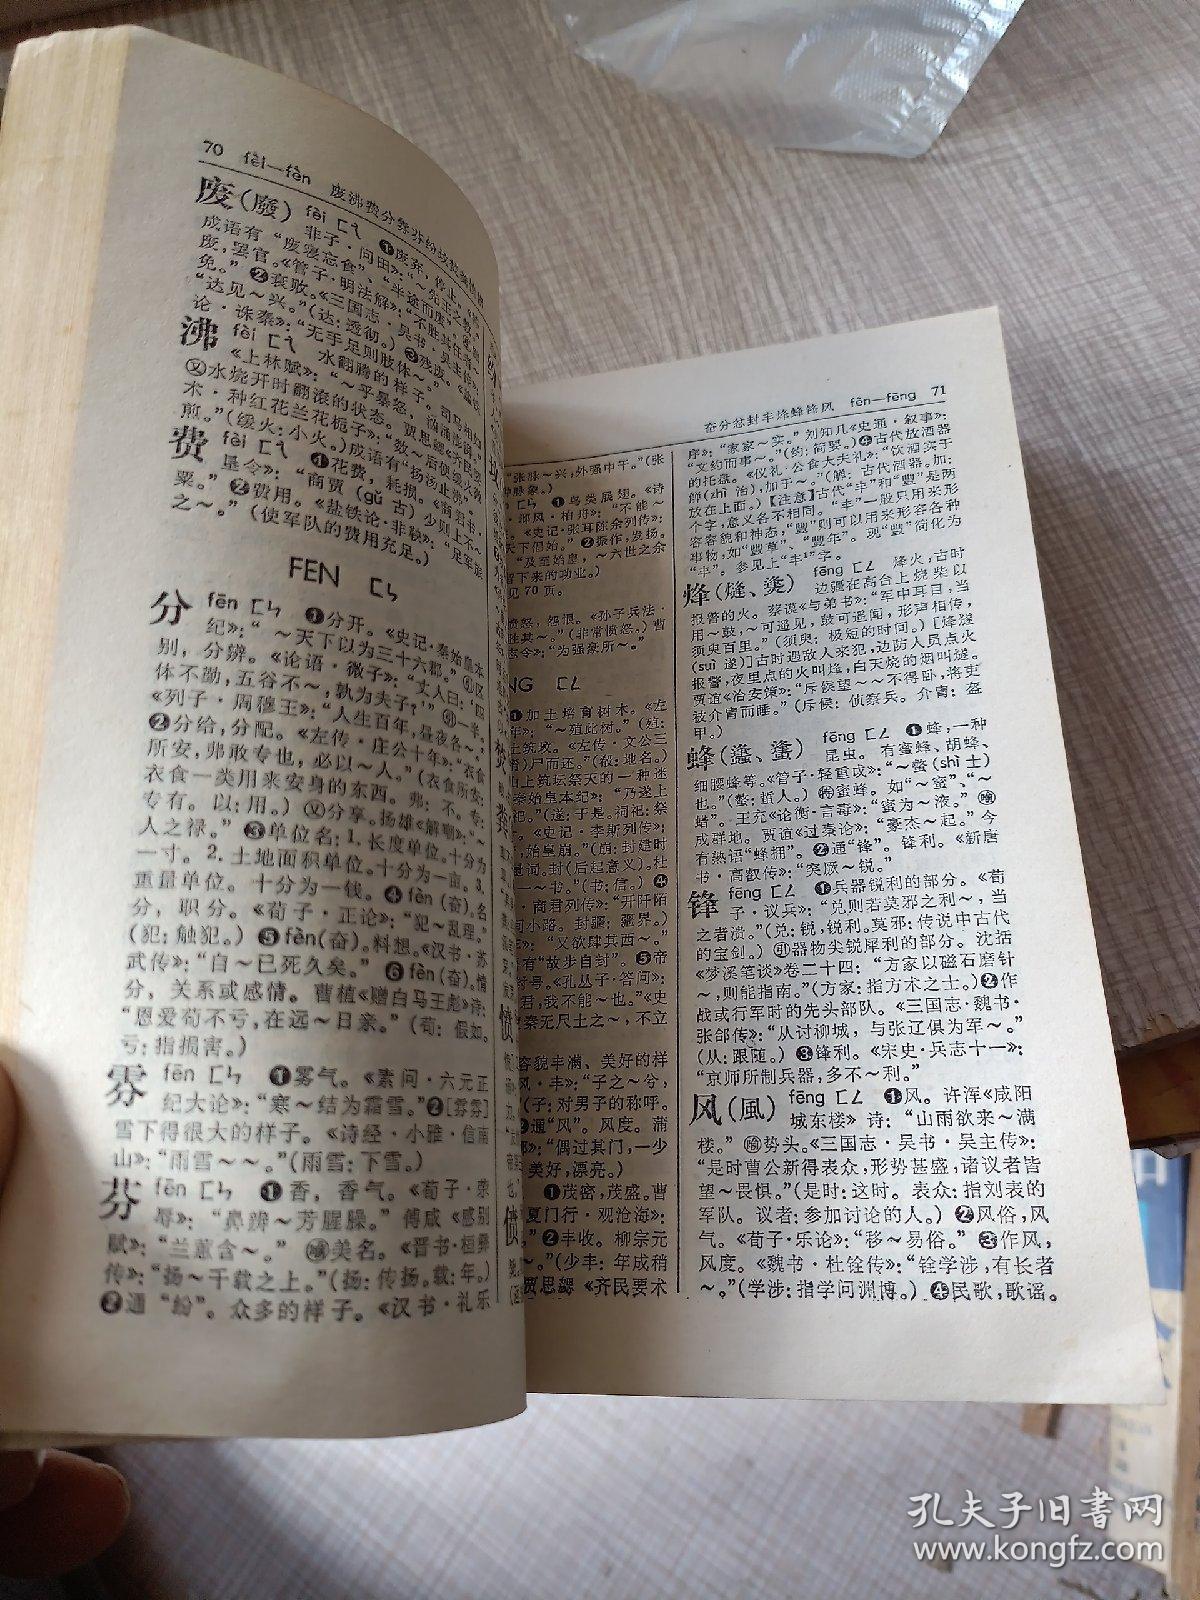 70 fèi—fēn 废沸费分雰芬纷
废(廢) fèi ㄈㄟ ❶废弃,停止。
非子·问田》:“~先王之教。”
成语有“废寝忘食”、“半途而废”。
废,罢官。《管子·明法解》:“不胜其任者
免。”❷衰败。《三国志·吴书·吴主传》:
“达见~兴。”(达:透彻。)❸残废。
论·诛秦》:“无手足则肢体~。”
沸 fèi ㄈㄟ 水翻腾的样子。司马相如
《上林赋》:“~乎暴怒,汹涌澎湃。”
㊂水烧开时翻滚的状态。贾思勰《齐民要
术·种红花兰花栀子》:“数~后便缓火
煎。”(缓火:小火。)成语有“扬汤止沸”。
费 fèi ㄈㄟ ❶花费,耗损。《商君书·
垦令》:“商贾(gǔ 古)少则上不~
粟。”❷费用。《盐铁论·非鞅》:“足军旅
之~。”(使军队的费用充足。)
FEN ㄈㄣ
分 fēn ㄈㄣ ❶分开。《史记·秦始皇本
纪》:“~天下以为三十六郡。”㊁区
别,分辨。《论语·微子》:“丈人曰:‘四
体不勤,五谷不~,孰为夫子?’”㊁一半。
《列子·周穆王》:“人生百年,昼夜各~。”
❷分给,分配。《左传·庄公十年》:“衣食
所安,弗敢专也,必以~人。”(衣食所安:
衣食一类用来安身的东西。弗:不。专:
专有。以:用。)㊂分享。扬雄《解嘲》:“~
人之禄。”❸单位名:1.长度单位。十分为
一寸。2.土地面积单位。十分为一亩。3.
重量单位。十分为一钱。❹fèn(奋)。名
分,职分。《荀子·正论》:“犯~乱理。”
(犯:触犯。)❺fèn(奋)。料想。《汉书·苏
武传》:“自~已死久矣。”❻fèn(奋)。情
分,关系或感情。曹植《赠白马王彪》诗:
“恩爱苟不亏,在远~日亲。”(苟:假如。
亏:指损害。)
雰 fēn ㄈㄣ ❶雾气。《素问·六元正
纪大论》:“寒~结为霜雪。”❷[雰雰]
雪下得很大的样子。《诗经·小雅·信南
山》:“雨雪~~。”(雨雪:下雪。)
芬 fēn ㄈㄣ ❶香,香气。《荀子·荣
辱》:“鼻辨~芳腥臊。”傅咸《感别
赋》:“兰蕙含~。”㊈美名。《晋书·桓彝
传》:“扬~千载之上。”(扬:传扬。载:年。)
❷通“纷”。众多的样子。《汉书·礼乐
奋分忿封丰烽蜂锋风 fēn—fēng 71
“张脉~兴,外强中干。”(张
❶鸟类展翅。《诗
·邶风·柏舟》:“不能~
《史记·张耳陈余列传》:
天下倡始。”❷振作,发扬。
“及至始皇,~六世之余
留下来的功业。)
见70页。
愤怒,怨恨。《孙子兵法·
胜其~。”(非常愤怒。)曹
令》:“为强豪所~。”
NG ㄈㄥ
❶加土培育树木。《左
“~殖此树。”
土筑坟。《左传·文公三
尸而还。”(殽:地名。)
山上筑坛祭天的一种迷
秦始皇本纪》:“乃遂上
祀。”(遂:于是。祠祀:祭
《史记·李斯列传》:
,始皇崩。”(崩:封建时
量词。封(后起意义)。杜
一~书。”(书:信。)❹
·商君列传》:“开阡陌
间小路。封疆:疆界。)
:“又欲肆其西~。”
有“故步自封”。❺帝
封号。《孔丛子·答问》:
君,我不能~也。”《史
秦无尺土之~,不立
容貌丰满、美好的样
风·丰》:“子之~兮,
(子:对男子的称呼。
❷通“风”。风度。蒲
:“偶过其门,一少
美好,漂亮。)
❶茂密,茂盛。曹
夏门行·观沧海》:
”❷丰收。柳宗元
~。”(少丰:年成稍
贾思勰《齐民要术
序》:“家家~实。”刘知几《史通·叙事》:
“文约而事~。”(约:简要。)❹古代放酒器
的托盘。《仪礼·公食大夫礼》:“饮酒实于
觯(zhì 治),加于~。”(觯:古代酒器。加:
放在上面。)【注意】古代“丰”和“豐”是两
个字,意义各不相同。“丰”一般只用来形
容容貌和神态,“豐”则可以用来形容各种
事物,如“豐草”、“豐年”。现“豐”简化为
“丰”。参见上“丰¹”字。
烽(熢、㷭) fēng ㄈㄥ 烽火,古时
边疆在高台上烧柴以
报警的火。蔡谟《与弟书》:“军中耳目,当
用~鼓,~可遥见,鼓可遥闻,形声相传,
须臾百里。”(须臾:极短的时间。)[烽燧
(suì 遂)]古时遇敌人来犯,边防人员点火
报警,夜里点的火叫烽,白天烧的烟叫燧。
贾谊《治安策》:“斥候望~~不得卧,将吏
被介胄而睡。”(斥候:侦察兵。介胄:盔
甲。)
蜂(蠭、䗬) fēng ㄈㄥ ❶蜂,一种
昆虫。有蜜蜂、胡蜂、
细腰蜂等。《管子·轻重戊》:“~螫(shì 士)
也。”(螫:蜇人。)㊕蜜蜂。如“~蜜”、“~
蜡”。王充《论衡·言毒》:“蜜为~液。”㊈
成群地。贾谊《过秦论》:“豪杰~起。”今
有熟语“蜂拥”。❷通“锋”。锋利。《新唐
书·高叡传》:“突厥~锐。”
锋 fēng ㄈㄥ ❶兵器锐利的部分。《荀
子·议兵》:“兑则若莫邪之利~,当
之者溃。”(兑:锐,锐利。莫邪:传说中古代
的宝剑。)㊁器物尖锐犀利的部分。沈括
《梦溪笔谈》卷二十四:“方家以磁石磨针
~,则能指南。”(方家:指方术之士。)❷作
战或行军时的先头部队。《三国志·魏书·
张郃传》:“从讨柳城,与张辽俱为军~。”
(从:跟随。)❸锋利。《宋史·兵志十一》:
“京师所制兵器,多不~利。”
风(風) fēng ㄈㄥ ❶风。许浑《咸阳
城东楼》诗:“山雨欲来~满
楼。”㊈势头。《三国志·吴书·吴主传》:
“是时曹公新得表众,形势甚盛,诸议者皆
望~畏惧。”(是时:这时。表众:指刘表的
军队。议者:参加讨论的人。)❷风俗,风
气。《荀子·乐论》:“移~易俗。”❸作风,
风度。《魏书·杜铨传》:“铨学涉,有长者
~。”(学涉:指学问渊博。)❹民歌,歌谣。
孔夫子旧书网
www.kongfz.com